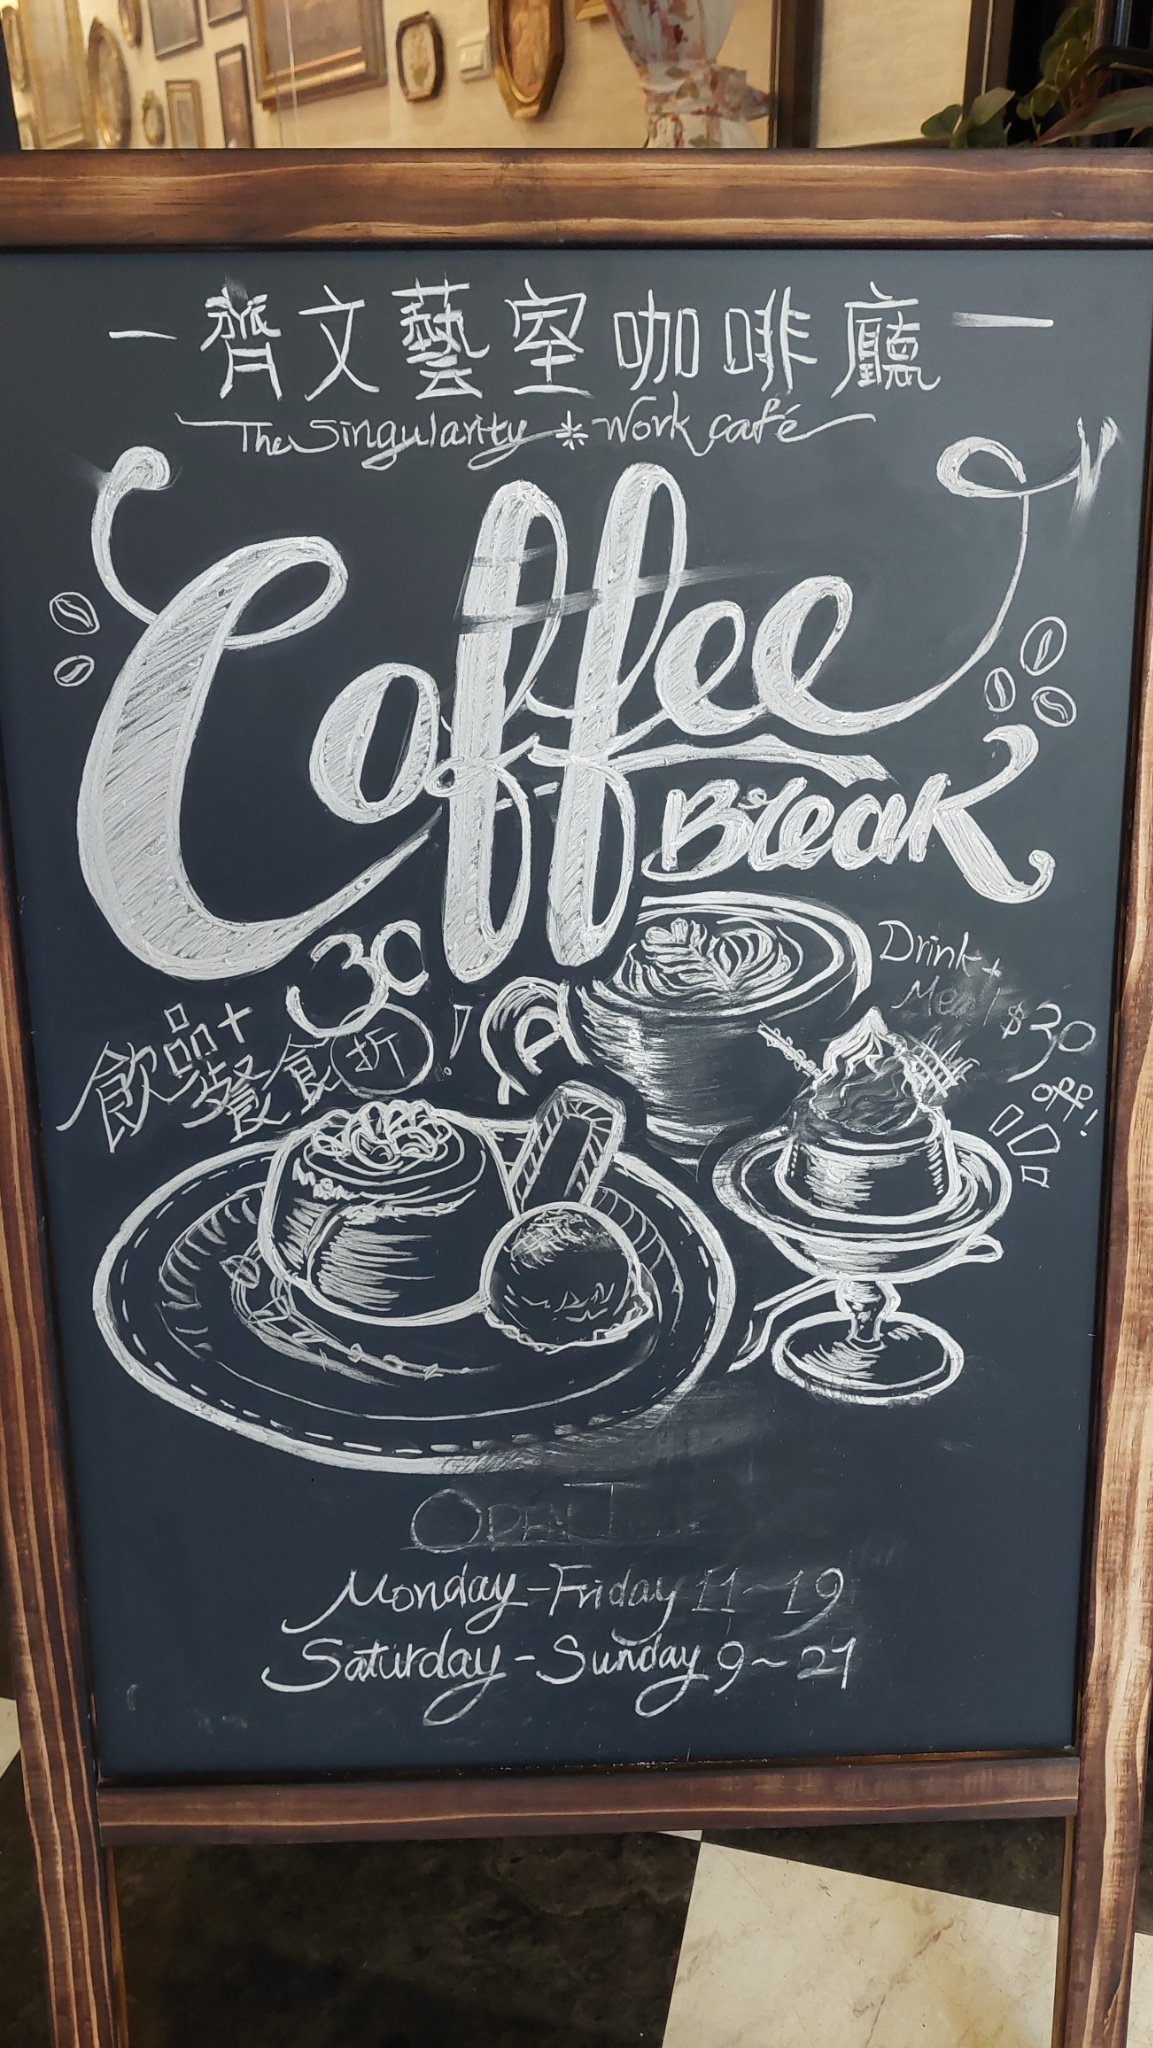 一齊文藝室咖啡廳一
The Singularity * Work café
Coffee
Break
飲品+餐食折30!
Drink+
Meal $30
OFF!
OPEN Time
Monday-Friday 11~19
Saturday-Sunday 9~21